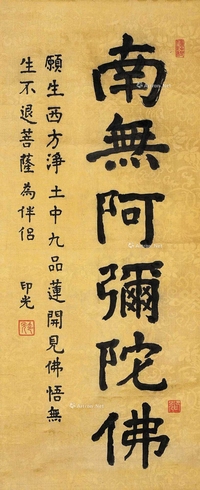 南無阿彌陀佛
願生西方淨土中九品蓮開見佛悟無
生不退菩薩為伴侶
印光